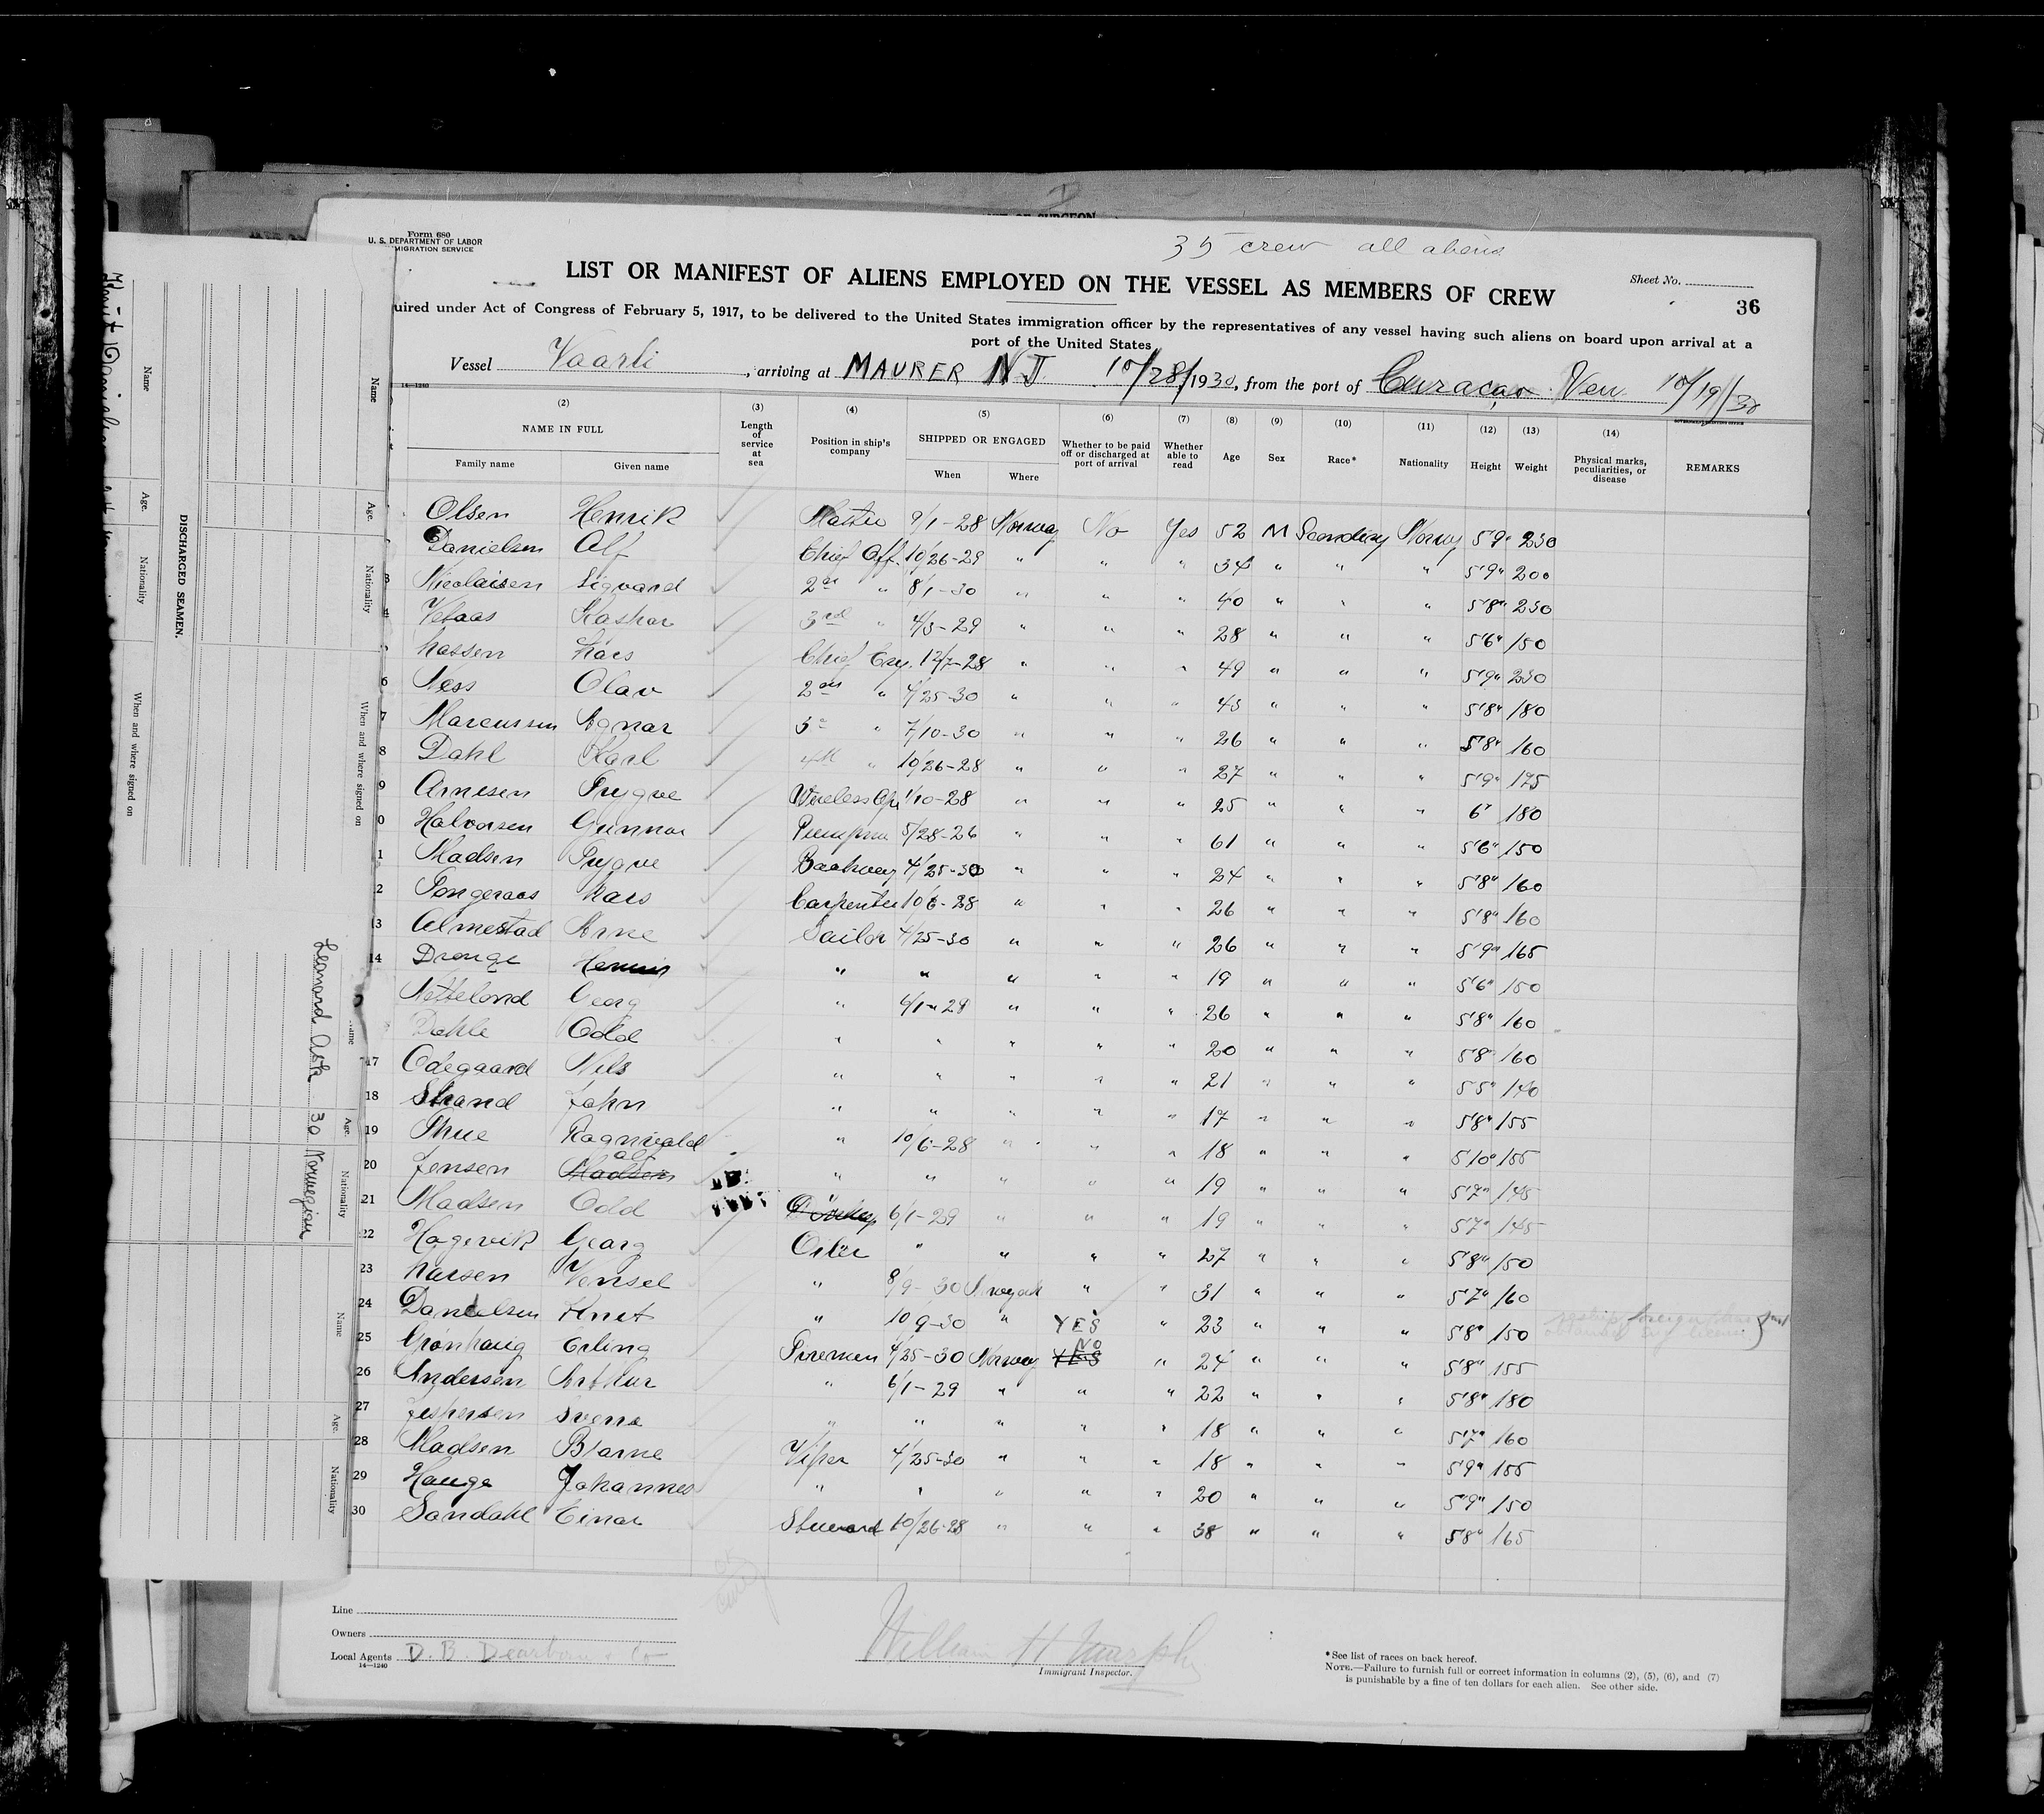 Form 680
U. S. DEPARTMENT OF LABOR
MIGRATION SERVICE
35 crew all aliens
LIST OR MANIFEST OF ALIENS EMPLOYED ON THE VESSEL AS MEMBERS OF CREW
Sheet No.
36
uired under Act of Congress of February 5, 1917, to be delivered to the United States immigration officer by the representatives of any vessel having such aliens on board upon arrival at a
port of the United States
Vessel Vaarli, arriving at MAURER N J 10/28/1930, from the port of Curacao Ven 10/19/30
14—1240
(2) (3) (4) (5) (6) (7) (8) (9) (10) (11) (12) (13) (14)
NAME IN FULL Length of service at sea Position in ship's company SHIPPED OR ENGAGED Whether to be paid off or discharged at port of arrival Whether able to read Age Sex Race* Nationality Height Weight Physical marks, peculiarities, or disease REMARKS
Family name Given name When Where
Olsen Henrik 9/1-28 Norway No Yes 52 M Norway 5'9" 230
Danielsen Alf Chief Off. 10/26-29 " " " 34 " " " 5'9" 200
3 Nicolaisen Sigvard " 8/1-30 " " " 40 " " " 5'8" 230
4 3rd " 4/3-29 " " " 28 " " " 5'6" 150
Chief Eng. 12/7-28 " " " 49 " " " 5'9" 230
6 Ness Olav " 4/25-30 " " " 43 " " " 5'8" 180
7 Marcussen Agnar " 7/10-30 " " " 26 " " " 5'8" 160
8 Dahl Karl 4th " 10/26-28 " " " 27 " " " 5'9" 175
9 Arnesen Trygve Wireless Op 1/10-28 " " " 25 " " " 6' 180
0 Halvorsen Gunnar 5/28-26 " " " 61 " " " 5'6" 150
1 Madsen Trygve 4/25-30 " " " 24 " " " 5'8" 160
2 Lars Carpenter 10/6-28 " " " 26 " " " 5'8" 160
13 Almestad Arne Sailor 4/25-30 " " " 26 " " " 5'9" 165
14 Dronge " " " " " 19 " " " 5'6" 150
Netteland Georg " " " " 26 " " " 5'8" 160
Dahle Odd " " " " " 20 " " " 5'8" 160
17 Odegaard Nils " " " " " 21 " " " 5'5" 140
18 Strand John " " " " " 17 " " " 5'8" 155
19 Thue Ragnvald " 10/6-28 " " " 18 " " " 5'10" 155
20 Jensen Madsen Alf " " " " " 19 " " " 5'7" 145
21 Madsen Odd 6/1-29 " " " 19 " " " 5'7" 145
22 Hagevik Georg Oiler " " " " 27 " " " 5'8" 150
23 Larsen Wensel " 8/9-30 " " 31 " " " 5'7" 160
24 Danielsen Knut " 10 9-30 " YES " 23 " " " 5'8" 150
25 Gronhaug Erling Firemen 4/25-30 Norway YES NO " 24 " " " 5'8" 155
26 Andersen Arthur " 6/1-29 " " " 22 " " " 5'8" 180
27 Jespersen Sverre " " " " " 18 " " " 5'7" 160
28 Madsen Bjarne Wiper 4/25-30 " " " 18 " " " 5'9" 155
29 Hauge Johannes " " " " " 20 " " " 5'9" 150
30 Sandahl Einar Steward 10/26-28 " " " 38 " " " 5'8" 165
Line
Owners
Local Agents D. B. Dearborn & Co
14—1240
William H Murphy
Immigrant Inspector.
*See list of races on back hereof.
NOTE.—Failure to furnish full or correct information in columns (2), (5), (6), and (7)
is punishable by a fine of ten dollars for each alien. See other side.
DISCHARGED SEAMEN.
Name Age. Nationality When and where signed on
Name Age. Nationality When and where signed on
Name Age. Nationality
Name Age. Nationality
Leonard 30 Norwegian